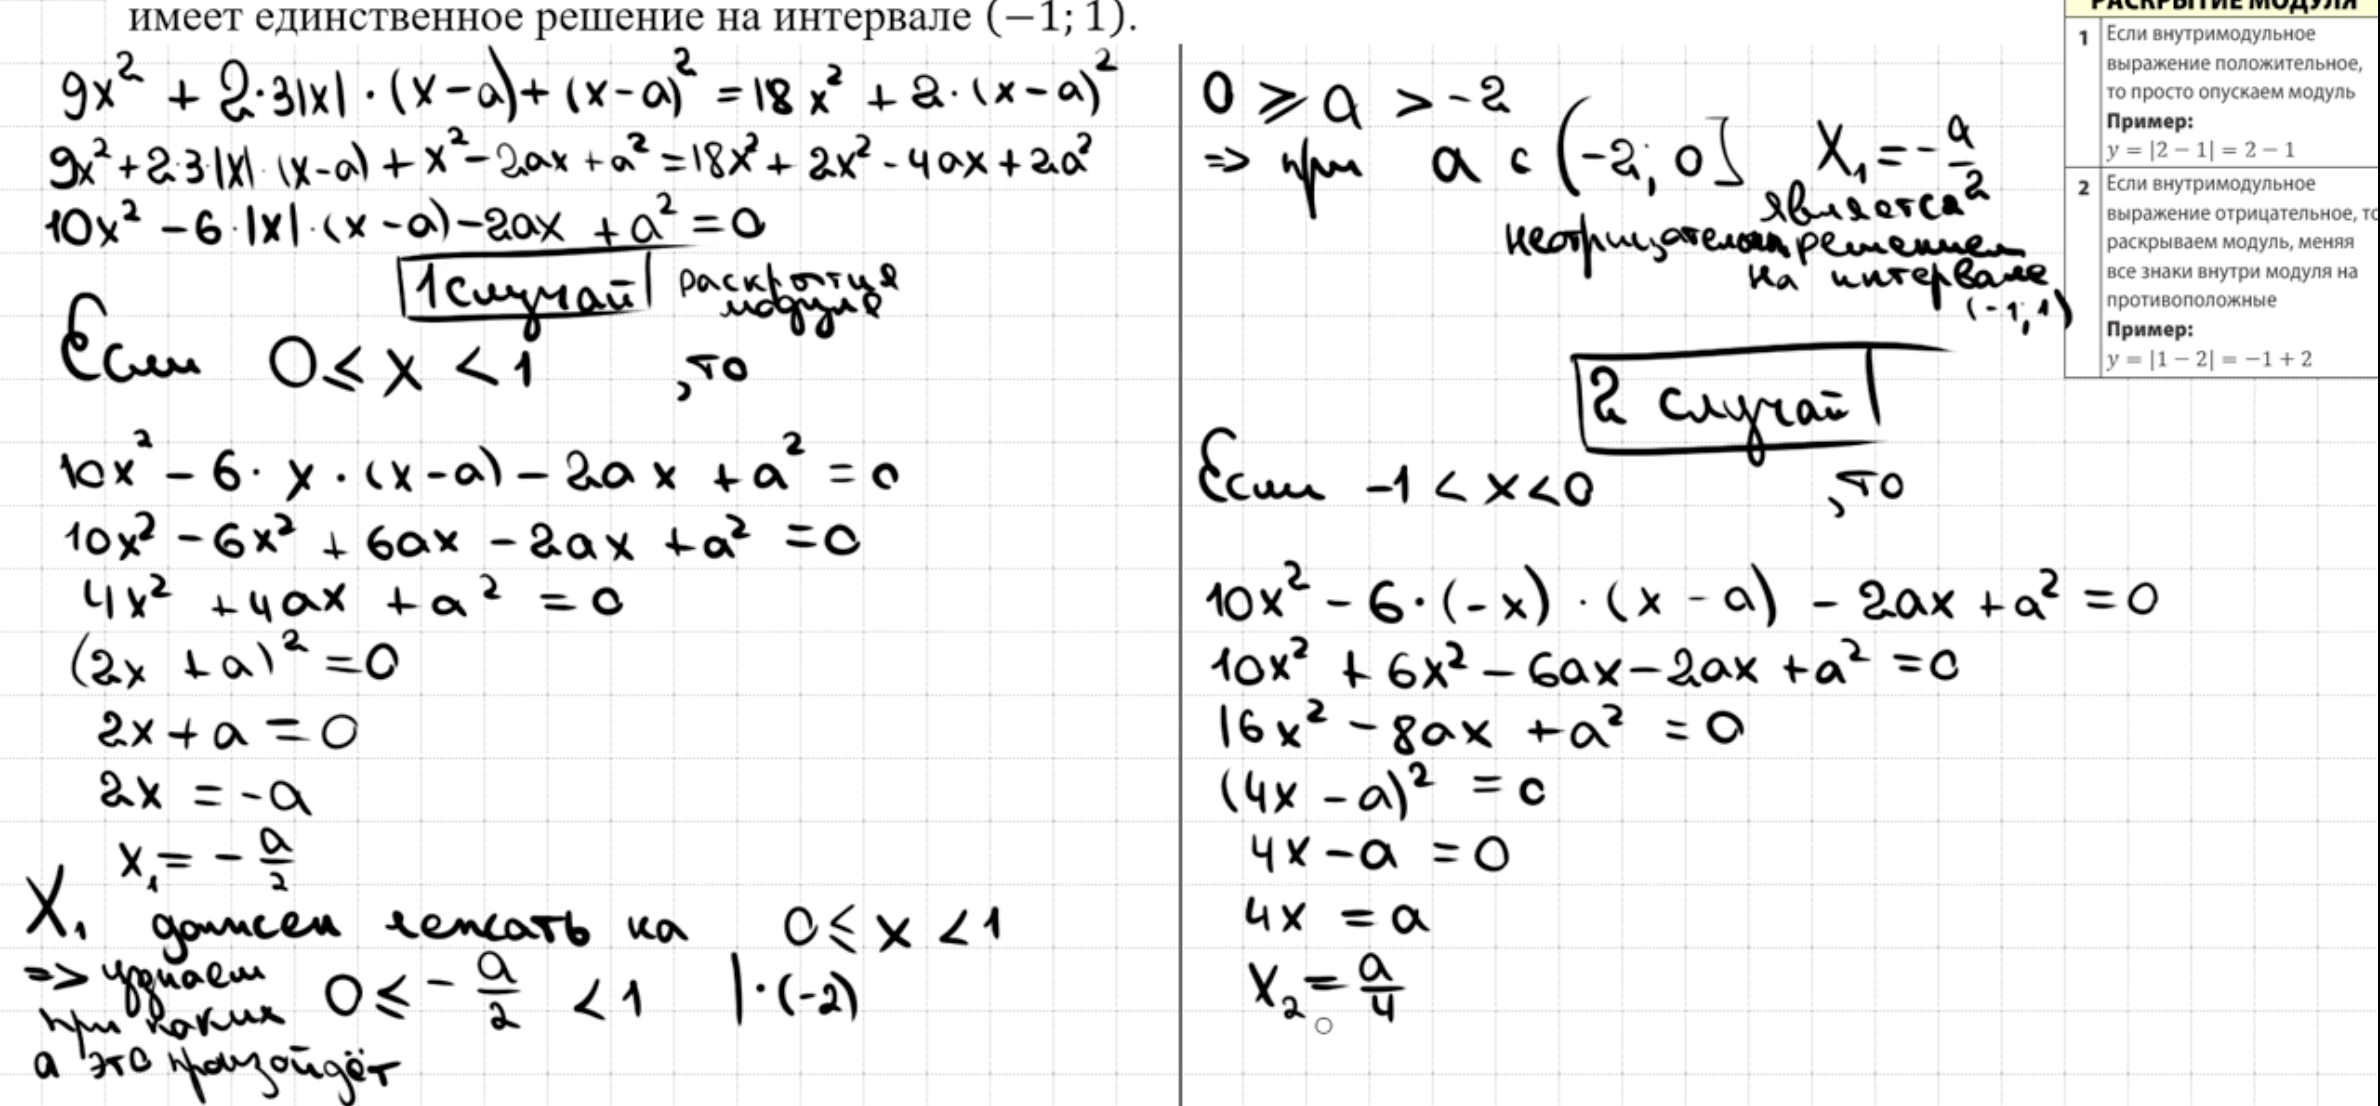 имеет единственное решение на интервале (−1; 1).
9x² + 2·3|x|·(x−a)+(x−a)² = 18x² + 2·(x−a)²
9x²+2·3·|x|·(x−a)+x²−2ax+a²=18x²+2x²−4ax+2a²
10x²−6·|x|·(x−a)−2ax+a²=0
1 случай раскрытия
модуля
Если 0≤x<1, то
10x²−6·x·(x−a)−2ax+a²=0
10x²−6x²+6ax−2ax+a²=0
4x²+4ax+a²=0
(2x+a)²=0
2x+a=0
2x=−a
x₁=−a/2
X₁ должен лежать на 0≤x<1
=> узнаем
при каких 0≤−a/2<1 |·(−2)
a это произойдёт
0≥a>−2
=> при a ∈ (−2; 0] X₁=−a/2
является
неотрицательным решением
на интервале
(−1; 1)
2 случай
Если −1<x<0, то
10x²−6·(−x)·(x−a)−2ax+a²=0
10x²+6x²−6ax−2ax+a²=0
16x²−8ax+a²=0
(4x−a)²=0
4x−a=0
4x=a
X₂=a/4
РАСКРЫТИЕ МОДУЛЯ
1 Если внутримодульное
выражение положительное,
то просто опускаем модуль
Пример:
y = |2 − 1| = 2 − 1
2 Если внутримодульное
выражение отрицательное, то
раскрываем модуль, меняя
все знаки внутри модуля на
противоположные
Пример:
y = |1 − 2| = −1 + 2